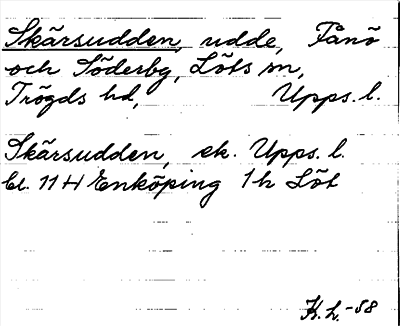 Skärsudden, udde, Fånö
och Söderby, Löts sn,
Trögds hd, Upps. l.
Skärsudden, ek. Upps. l.
bl. 11 H Enköping 1h Löt
K. L. -58